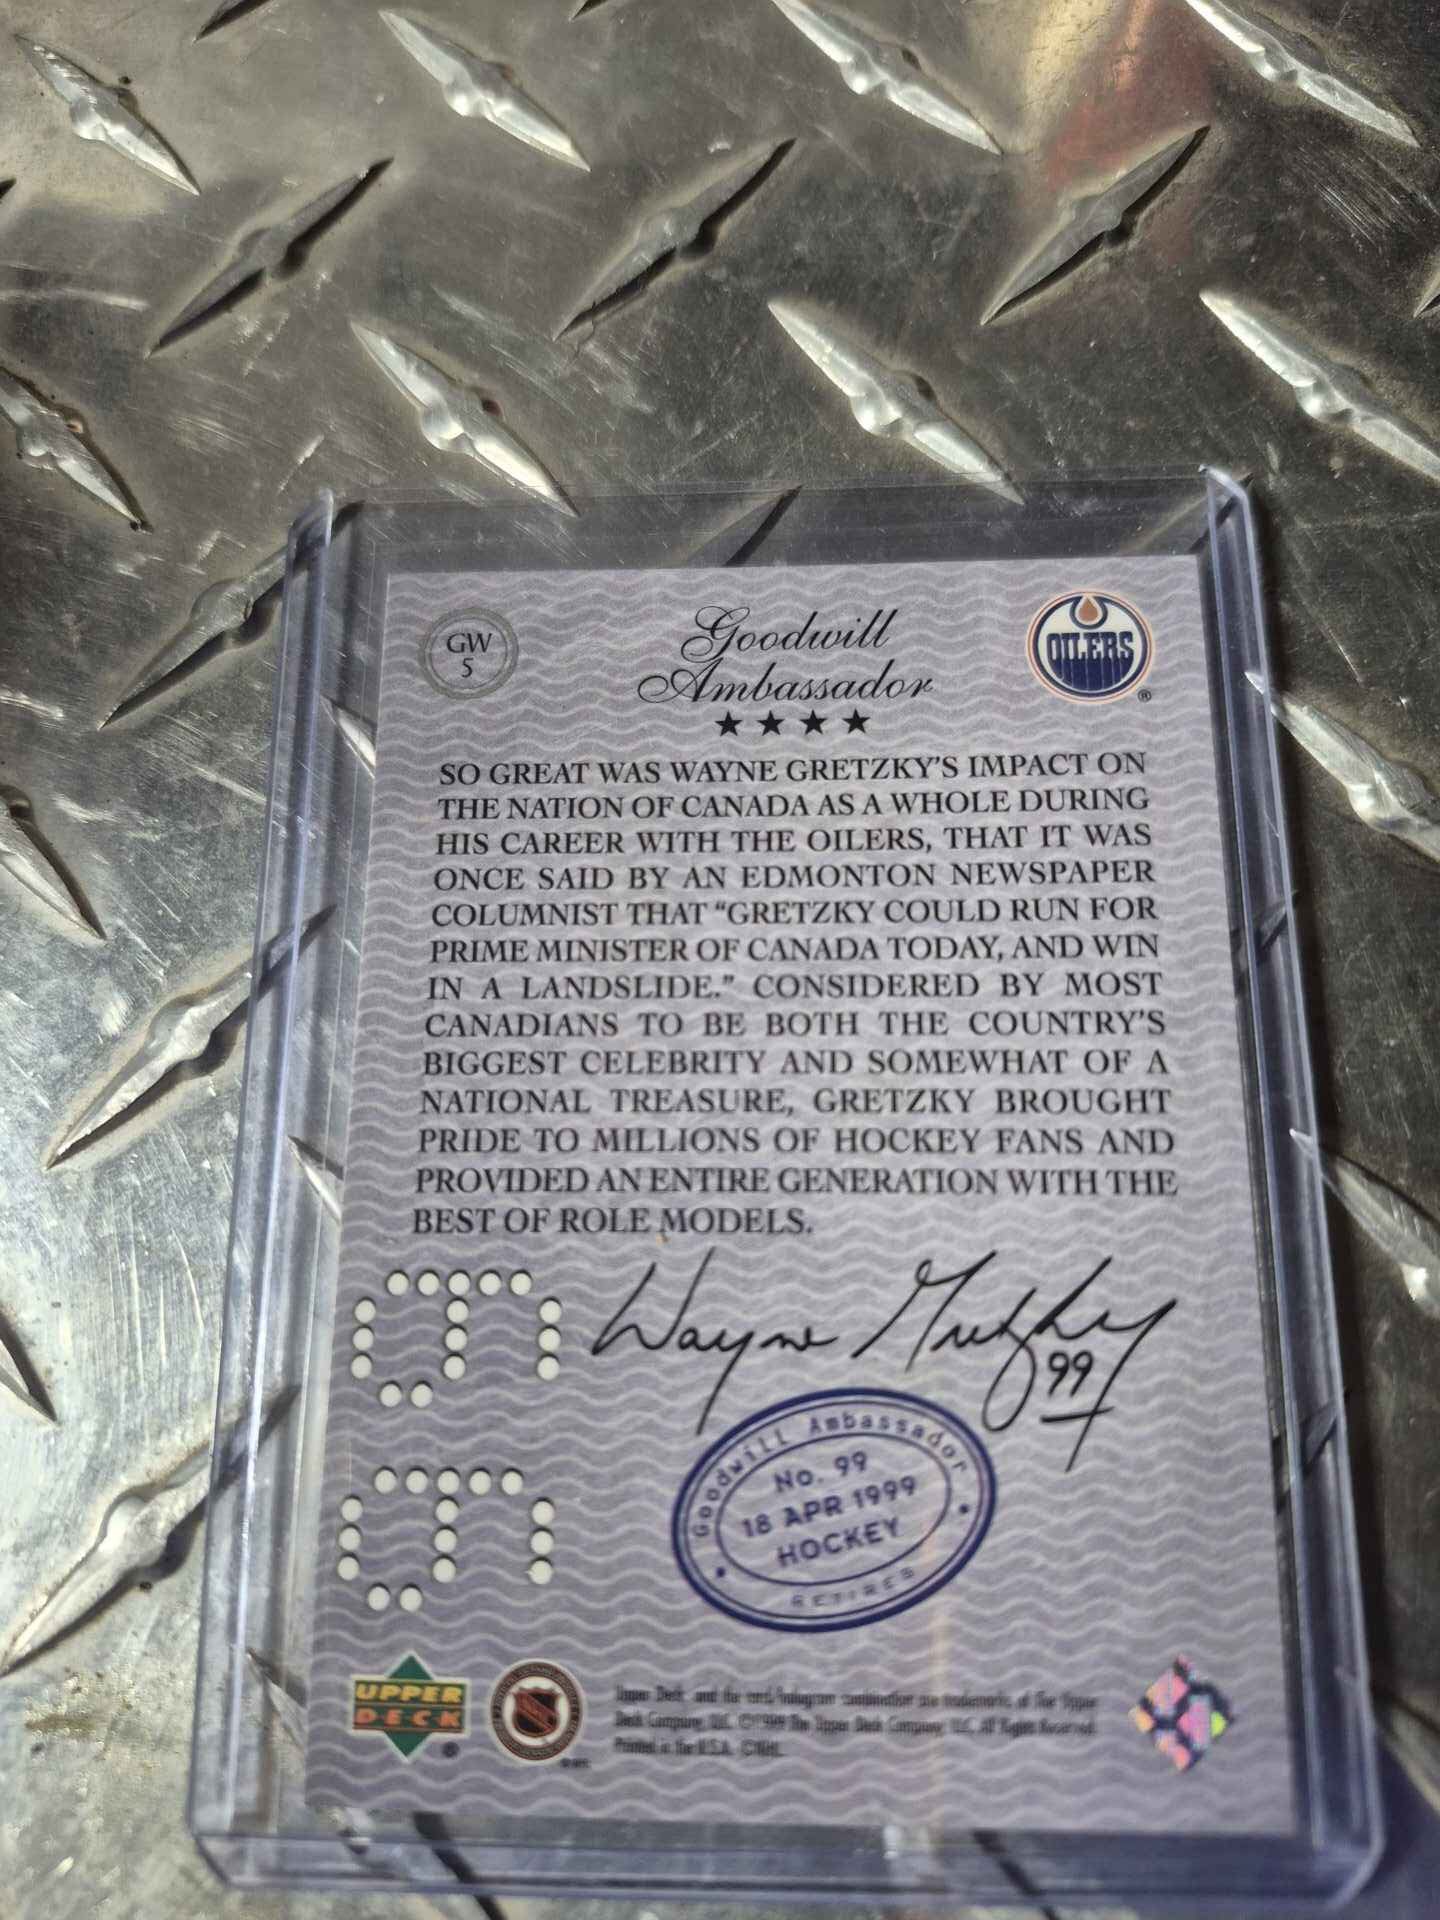 GW
5
Goodwill
Ambassador
OILERS
®
SO GREAT WAS WAYNE GRETZKY'S IMPACT ON
THE NATION OF CANADA AS A WHOLE DURING
HIS CAREER WITH THE OILERS, THAT IT WAS
ONCE SAID BY AN EDMONTON NEWSPAPER
COLUMNIST THAT “GRETZKY COULD RUN FOR
PRIME MINISTER OF CANADA TODAY, AND WIN
IN A LANDSLIDE.” CONSIDERED BY MOST
CANADIANS TO BE BOTH THE COUNTRY'S
BIGGEST CELEBRITY AND SOMEWHAT OF A
NATIONAL TREASURE, GRETZKY BROUGHT
PRIDE TO MILLIONS OF HOCKEY FANS AND
PROVIDED AN ENTIRE GENERATION WITH THE
BEST OF ROLE MODELS.
Wayne Gretzky
99
Goodwill Ambassador
No. 99
18 APR 1999
HOCKEY
RETIRES
UPPER
DECK
Upper Deck and the card/hologram combination are trademarks of The Upper
Deck Company, LLC. ©1999 The Upper Deck Company, LLC. All Rights Reserved.
Printed in the U.S.A. ©NHL.